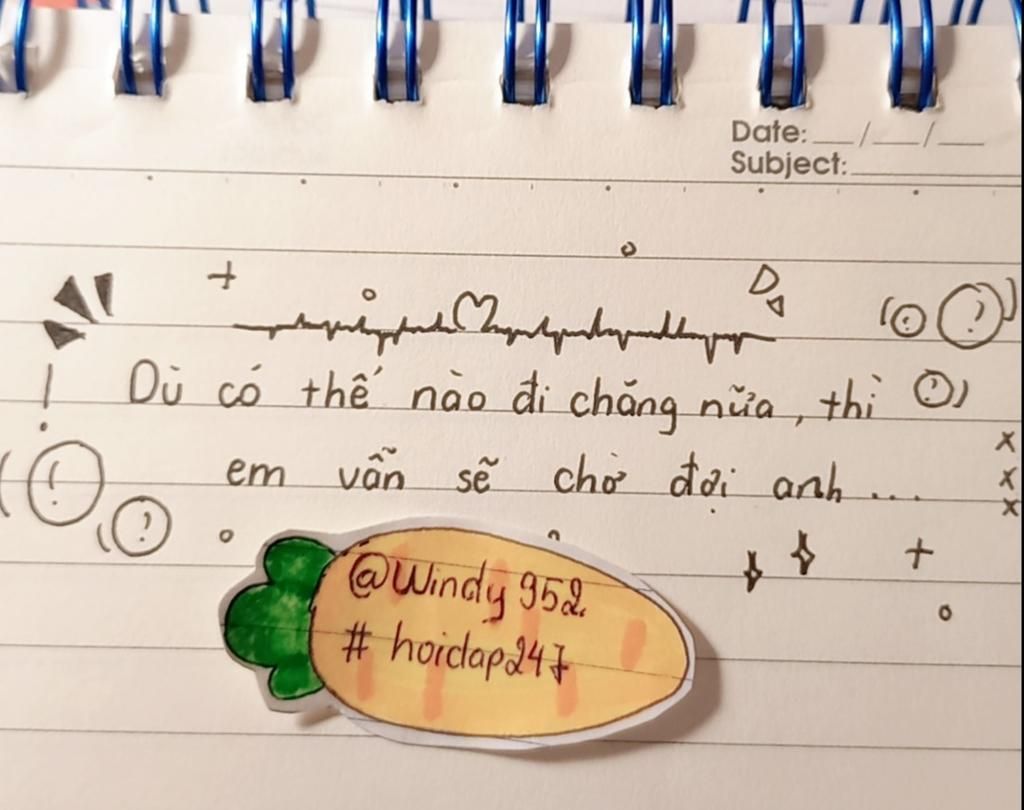 Date: __/__/__
Subject:
Dù có thế nào đi chăng nữa, thì
em vẫn sẽ chờ đợi anh ...
@Windy952
# hoidap247